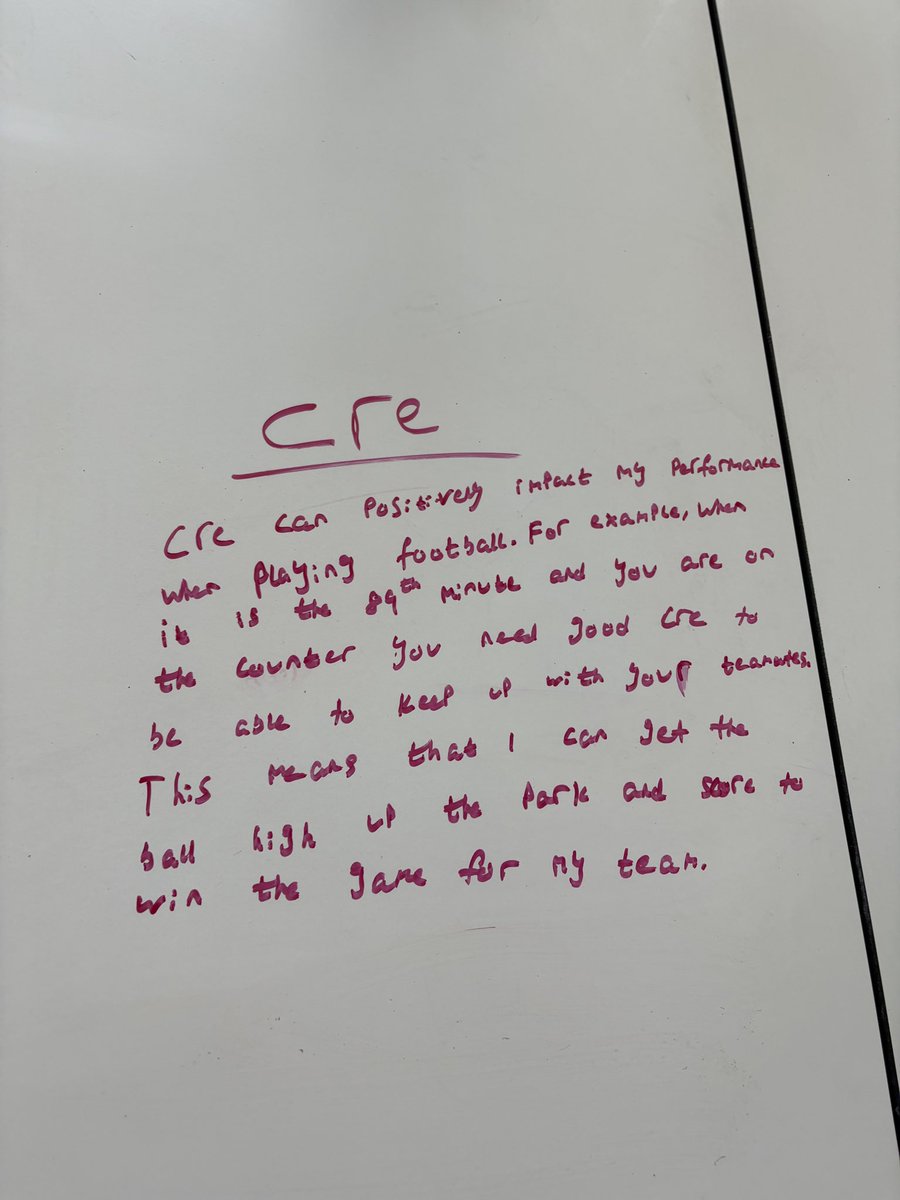 Cre
Cre can positively impact my performance
when playing football. For example, when
it is the 89th minute and you are on
the counter you need good cre to
be able to keep up with your teamates.
This means that I can get the
ball high up the park and score to
win the game for my team.